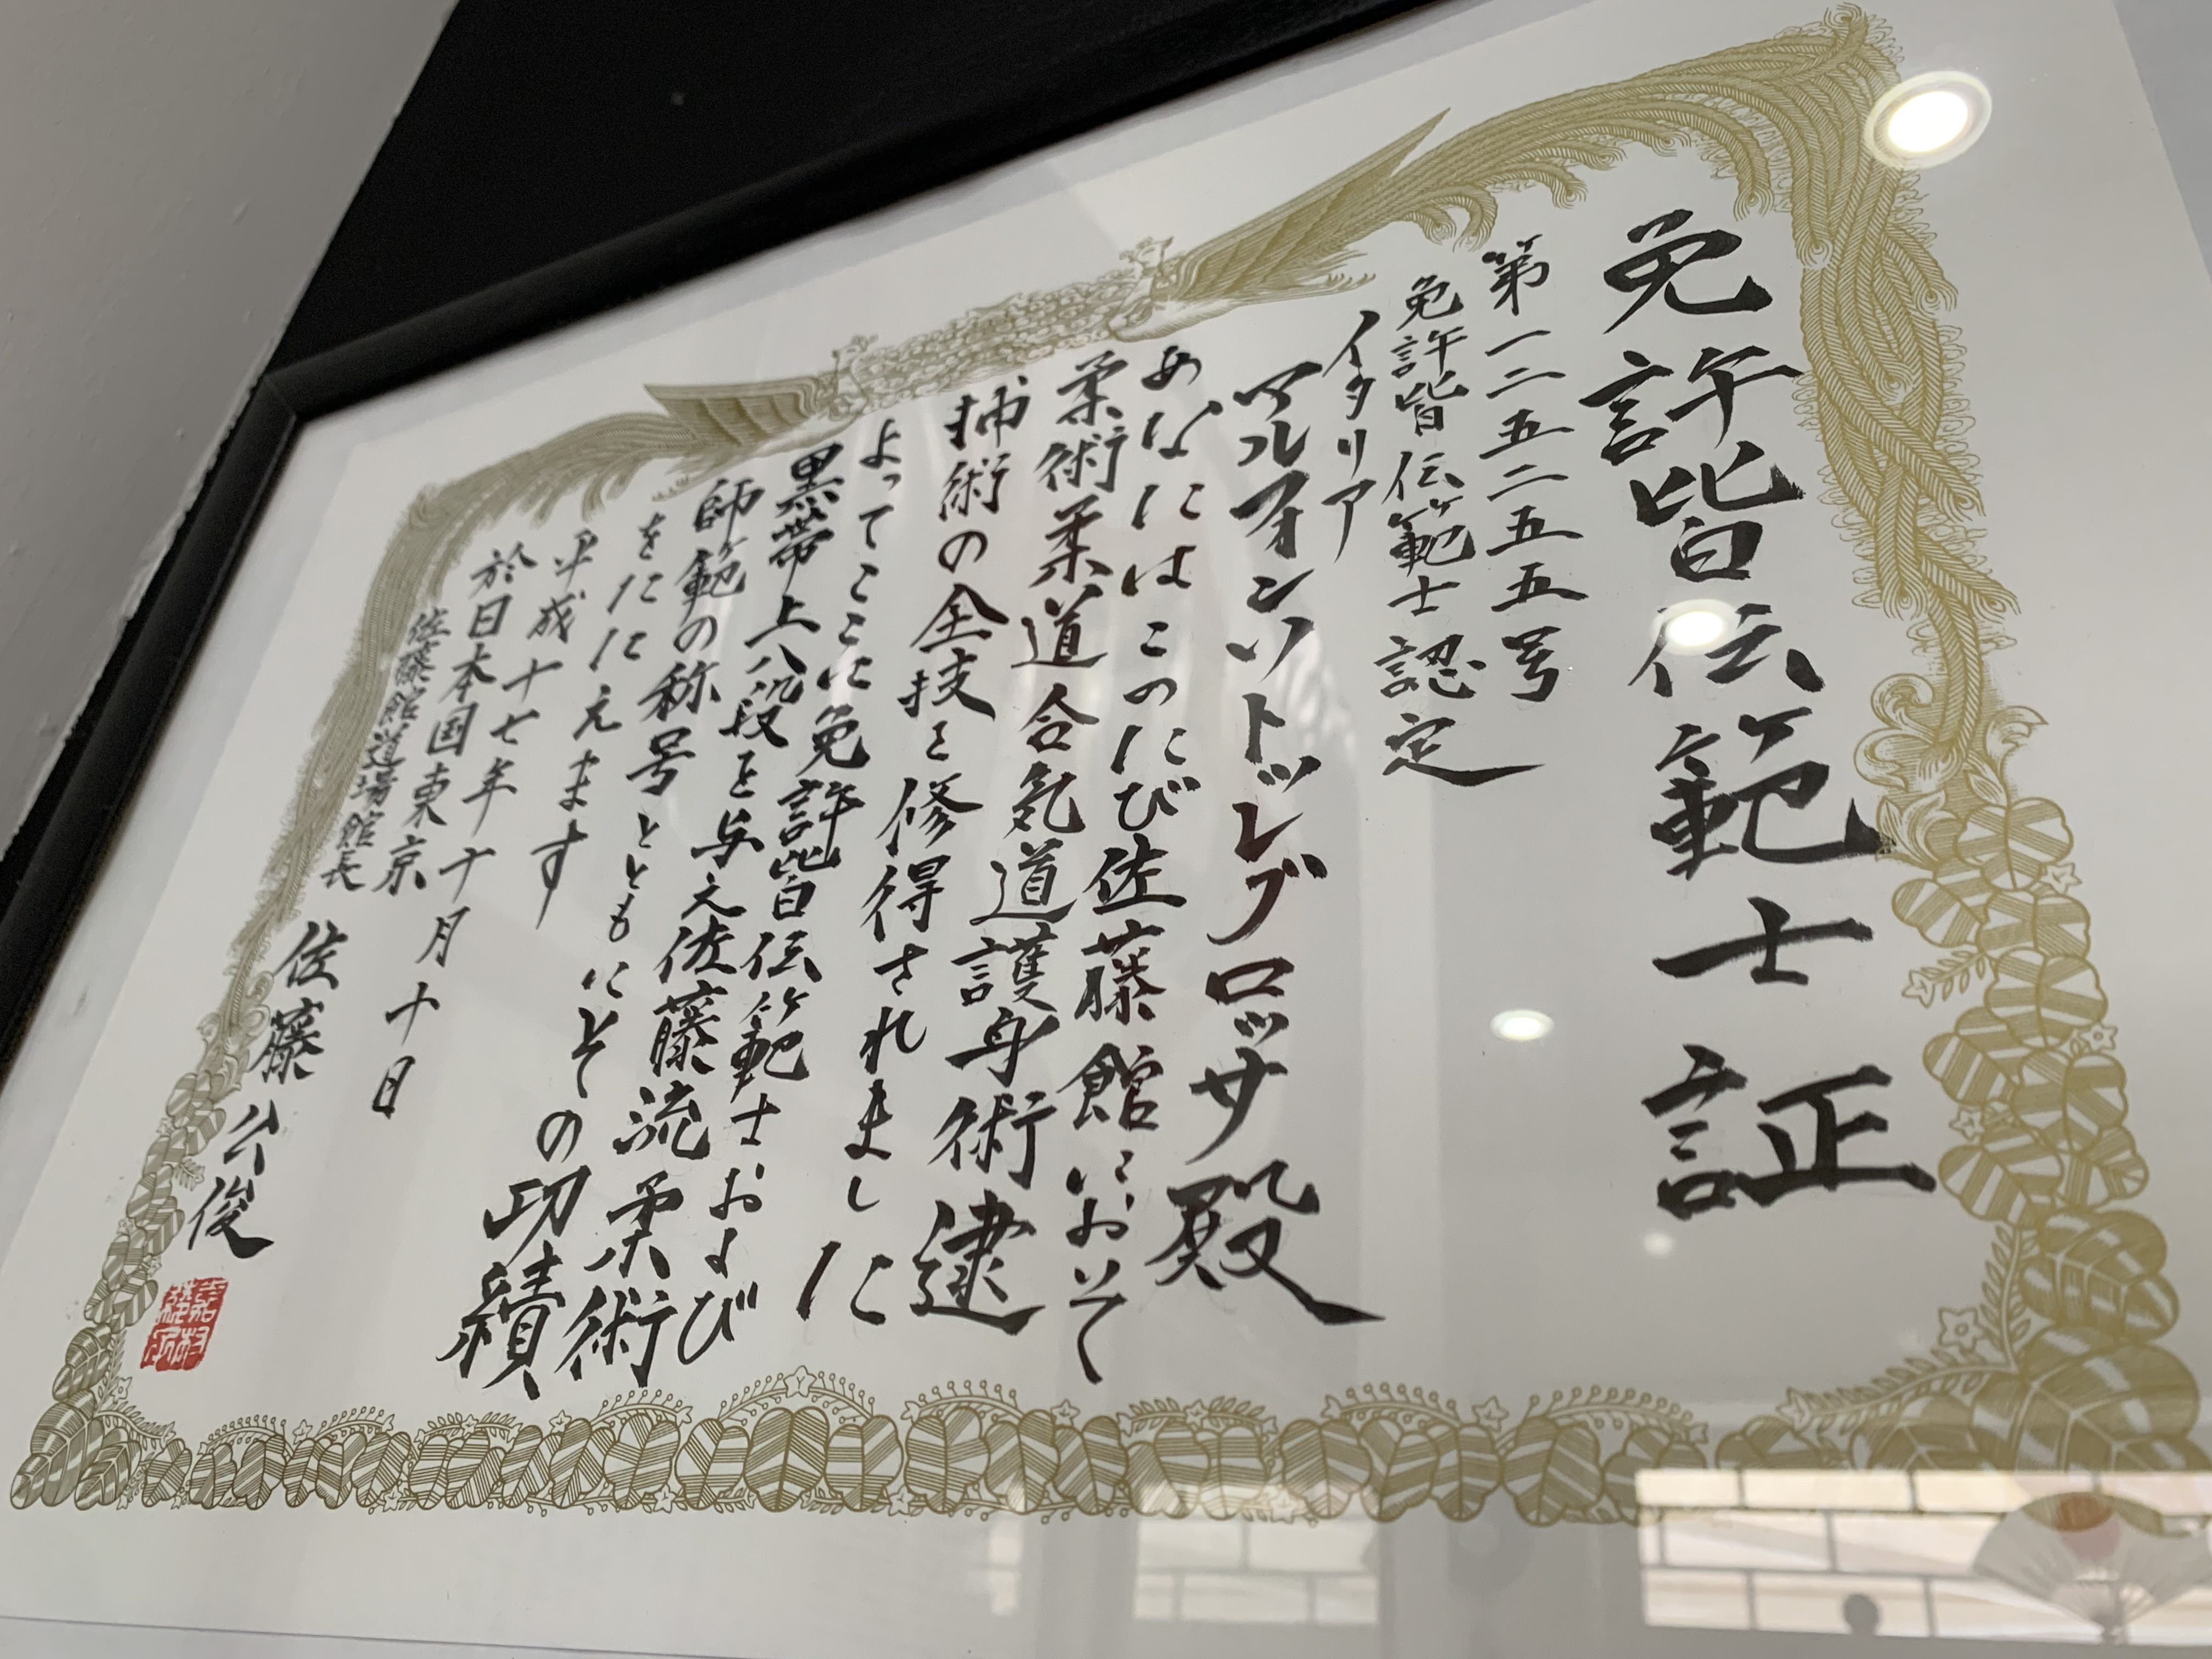 免許皆伝範士証
第一二五二五五号
免許皆伝範士認定
イタリア
アルフォンソトッレグロッサ殿
あなたはこのたび佐藤館において
柔術柔道合気道護身術逮
捕術の全技を修得されました
よってここに免許皆伝範士および
黒帯上八段を与え佐藤流柔術
師範の称号とともにその功績
をたたえます
平成十七年十月十日
於日本国東京
佐藤館道場館長 佐藤公俊